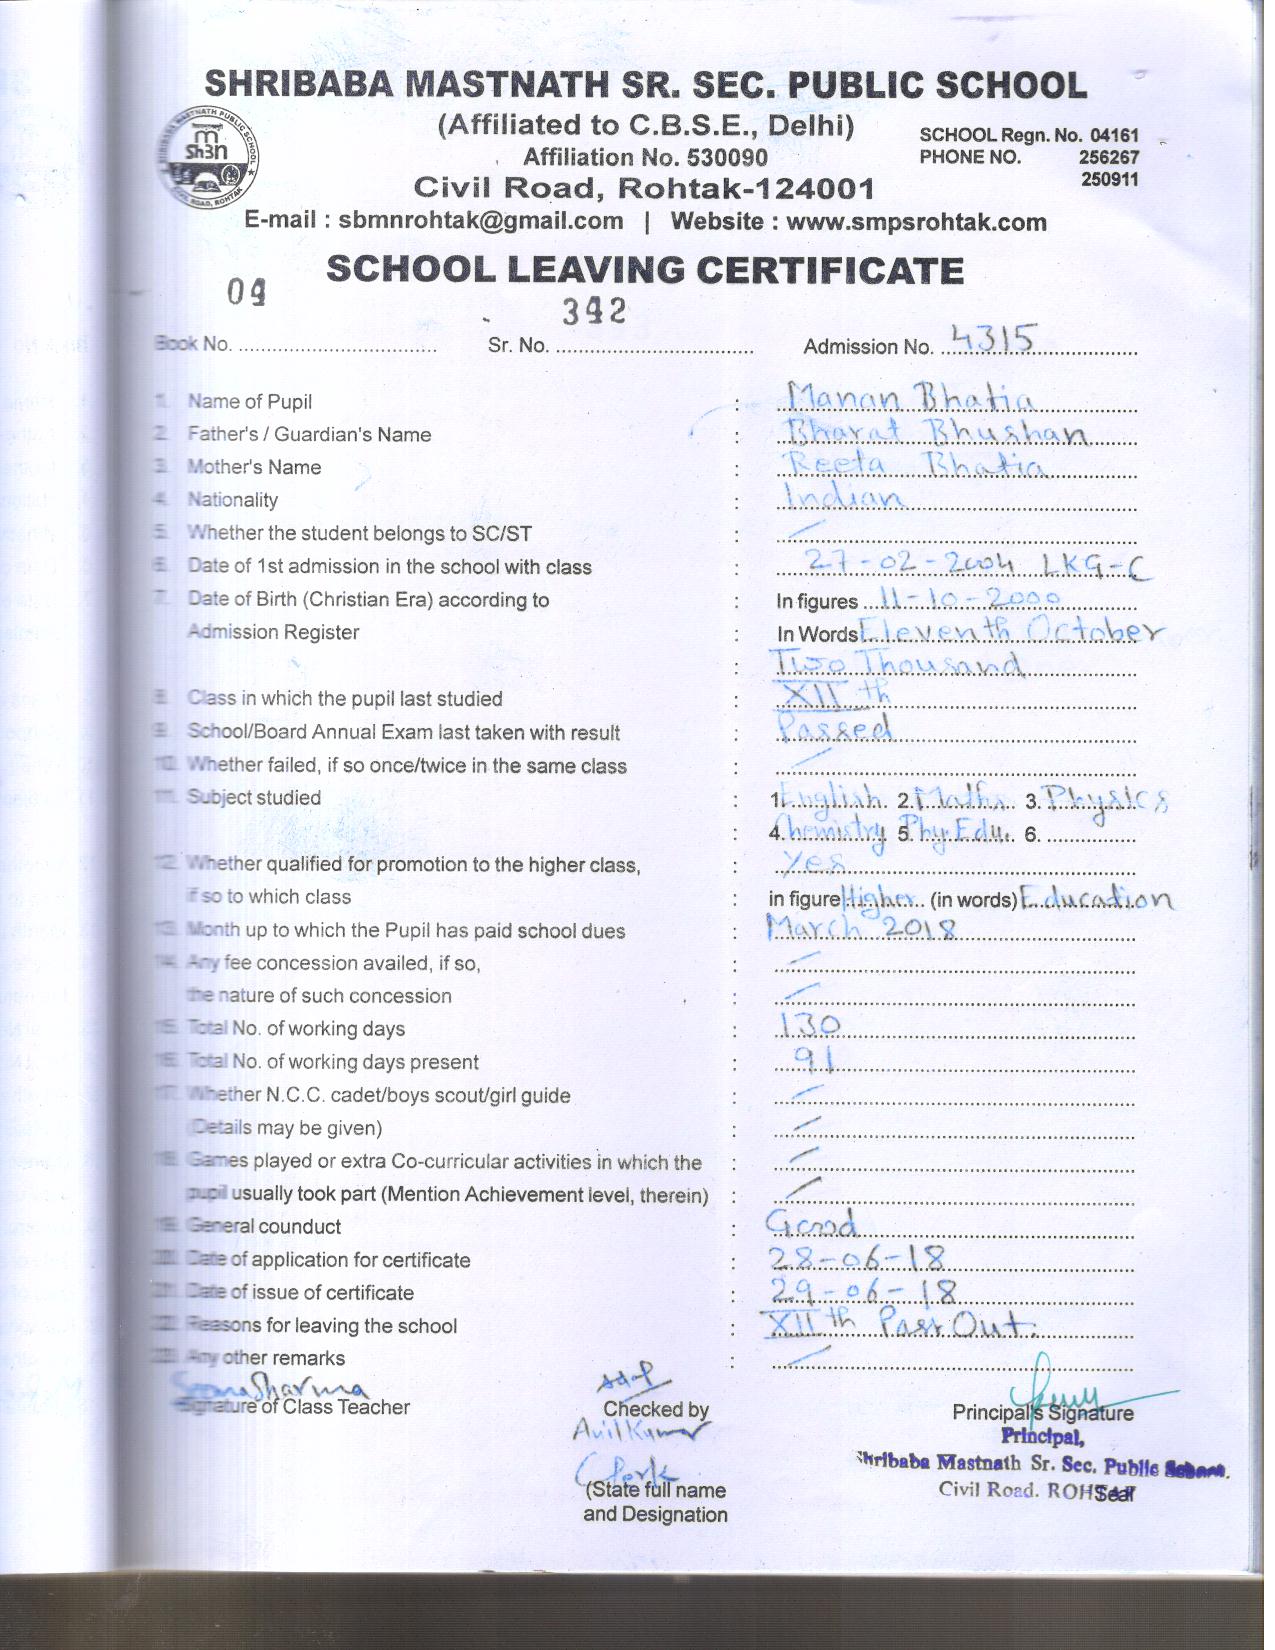 SHRIBABA MASTNATH SR. SEC. PUBLIC SCHOOL
(Affiliated to C.B.S.E., Delhi)
Affiliation No. 530090
SCHOOL Regn. No. 04161
PHONE NO. 256267
250911
Civil Road, Rohtak-124001
E-mail : sbmnrohtak@gmail.com | Website : www.smpsrohtak.com
SHRIBABA MASTNATH PUBLIC SCHOOL
CIVIL ROAD, ROHTAK
SCHOOL LEAVING CERTIFICATE
Book No. 04 Sr. No. 342 Admission No. 4315
1. Name of Pupil : Manan Bhatia
2. Father's / Guardian's Name : Bharat Bhushan
3. Mother's Name : Reeta Bhatia
4. Nationality : Indian
5. Whether the student belongs to SC/ST : /
6. Date of 1st admission in the school with class : 27-02-2004 LKG-C
7. Date of Birth (Christian Era) according to : In figures 11-10-2000
Admission Register : In Words Eleventh October
: Two Thousand
8. Class in which the pupil last studied : XII th
9. School/Board Annual Exam last taken with result : Passed
10. Whether failed, if so once/twice in the same class : /
11. Subject studied : 1. English 2. Maths 3. Physics
: 4. Chemistry 5. Phy. Edu. 6.
12. Whether qualified for promotion to the higher class, : Yes
if so to which class : in figure Higher (in words) Education
13. Month up to which the Pupil has paid school dues : March 2018
14. Any fee concession availed, if so, : /
the nature of such concession : /
15. Total No. of working days : 130
16. Total No. of working days present : 91
17. Whether N.C.C. cadet/boys scout/girl guide : /
(Details may be given) : /
18. Games played or extra Co-curricular activities in which the : /
pupil usually took part (Mention Achievement level, therein) : /
19. General counduct : Good
20. Date of application for certificate : 28-06-18
21. Date of issue of certificate : 29-06-18
22. Reasons for leaving the school : XII th Pass Out.
23. Any other remarks : /
Sharma
Signature of Class Teacher Checked by Principal's Signature
Anil Kumar
Clerk
(State full name
and Designation
Principal,
Shribaba Mastnath Sr. Sec. Public School.
Civil Road. ROH
Seal